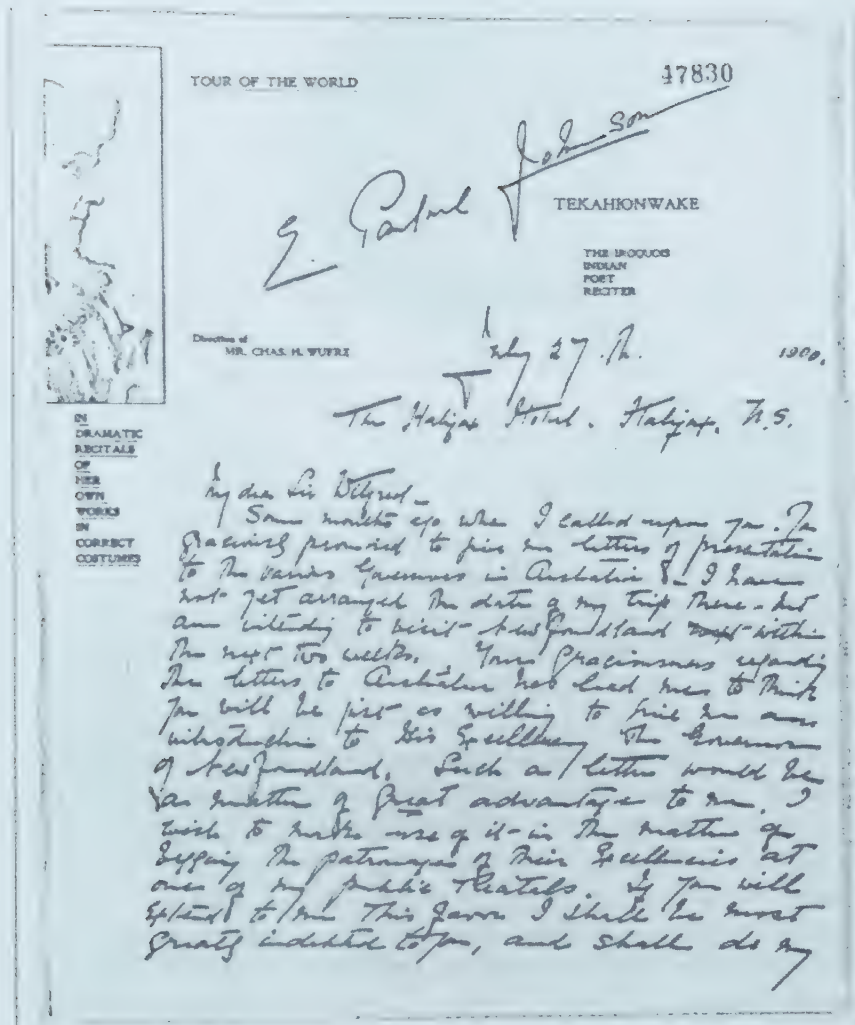 TOUR OF THE WORLD
47830
E. Pauline Johnson
TEKAHIONWAKE
THE IROQUOIS
INDIAN
POET
RECITER
Direction of
MR. CHAS. H. WUERZ
July 27.th. 1900.
The Halifax Hotel. Halifax, N.S.
IN
DRAMATIC
RECITALS
OF
HER
OWN
WORKS
IN
CORRECT
COSTUMES
My dear Sir Wilfred –
Some months ago when I called upon you. You
graciously promised to give me letters of presentation
to the various Governors in Australia & – I have
not yet arranged the date of my trip there – but
am intending to visit Newfoundland within
the next two weeks. Your graciousness regarding
the letters to Australia has lead me to think
you will be just as willing to give me an
introduction to His Excellency The Governor
of Newfoundland. Such a letter would be
a matter of great advantage to me. I
wish to make use of it in the matter of
begging the patronage of their Excellencies at
one of my public recitals. If you will
extend to me this favor I shall be most
greatly indebted to you, and shall do my